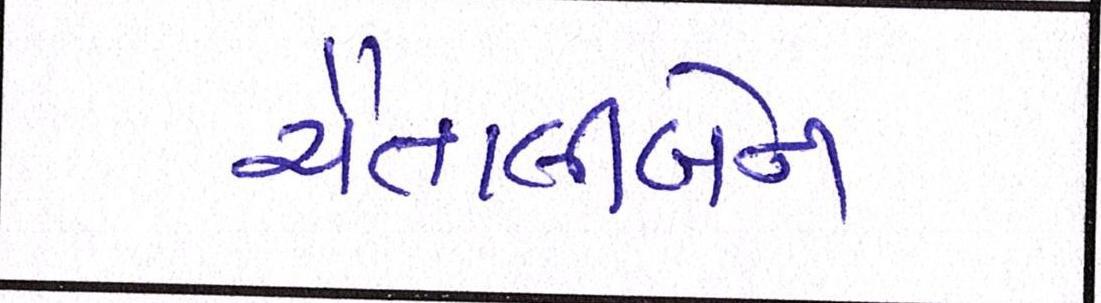 ચૈતાલીબેન